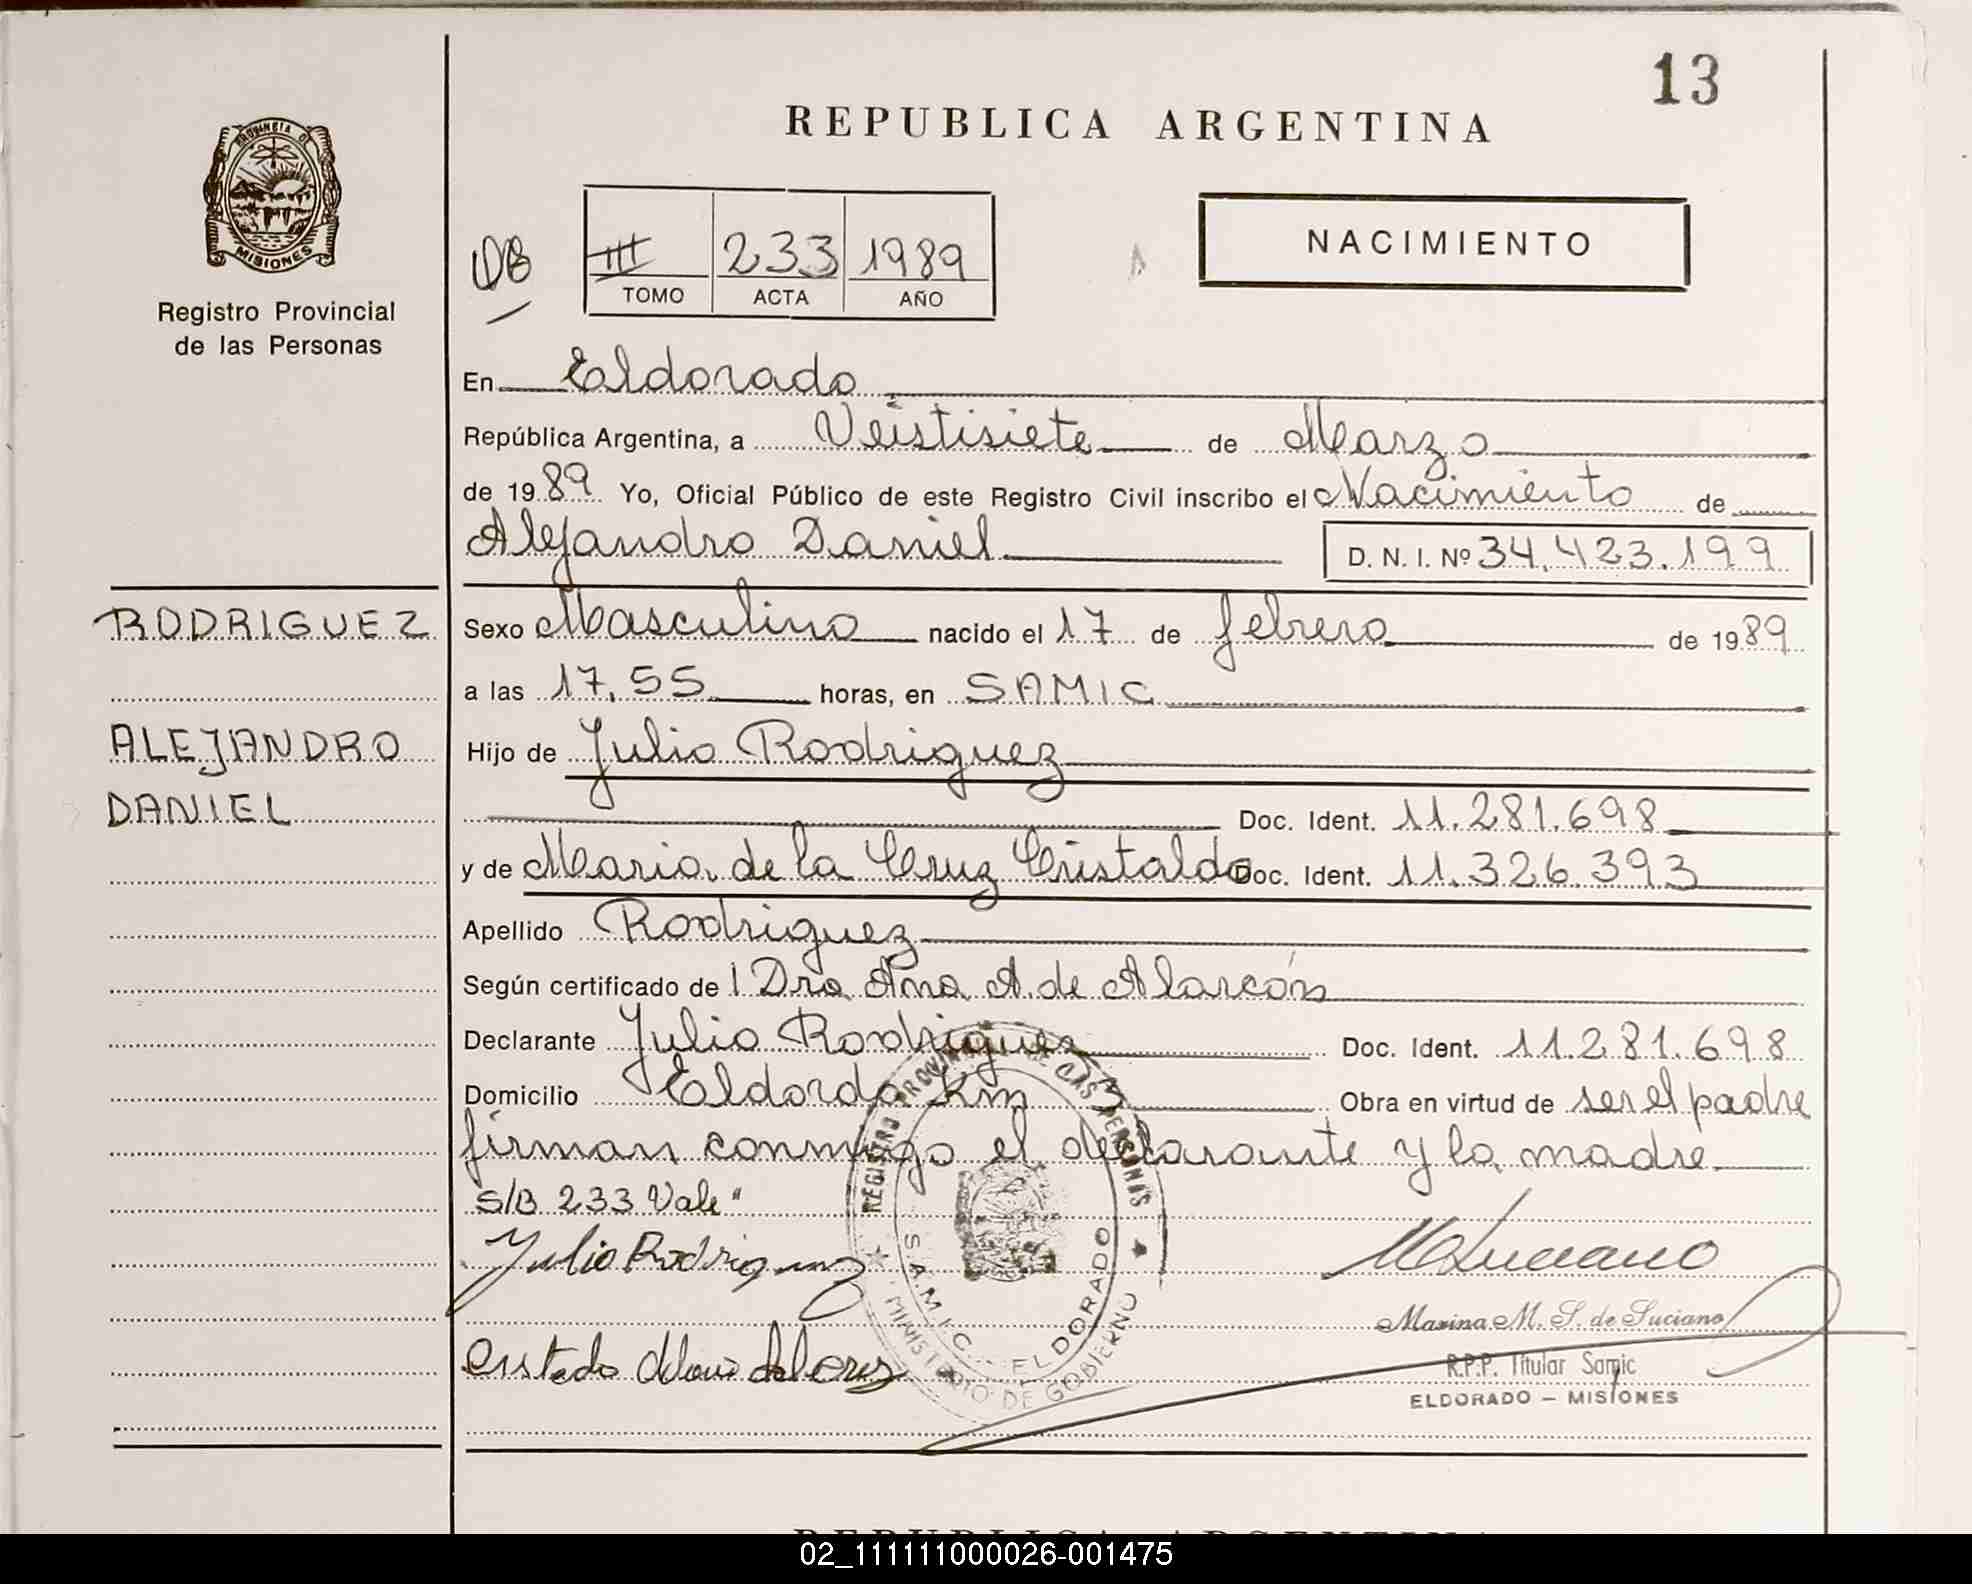 13
REPUBLICA ARGENTINA
PROVINCIA DE
MISIONES
Registro Provincial
de las Personas
III 233 1989
TOMO ACTA AÑO
NACIMIENTO
En Eldorado
República Argentina, a Veistisiete de Marzo
de 1989 Yo, Oficial Público de este Registro Civil inscribo el Nacimiento de
Alejandro Daniel D. N. I. Nº 34.423.199
RODRIGUEZ
Sexo Masculino nacido el 17 de febrero de 1989
a las 17,55 horas, en SAMIC
ALEJANDRO
Hijo de Julio Rodriguez
DANIEL
Doc. Ident. 11.281.698
y de Maria de la Cruz Cristaldo Doc. Ident. 11.326.393
Apellido Rodriguez
Según certificado de l Dra Ana A. de Alarcón
Declarante Julio Rodriguez Doc. Ident. 11.281.698
Domicilio Eldordo Km 3 Obra en virtud de ser el padre
firman conmigo el declarante y la madre
S/B 233 Vale"
Julio Rodriguez
REGISTRO PROVINCIAL DE LAS PERSONAS
S.A.M.I.C. - ELDORADO
MINISTERIO DE GOBIERNO
Marina M. S. de Luciano
R.P.P. Titular Samic
ELDORADO — MISIONES
REPUBLICA ARGENTINA
02_111111000026-001475